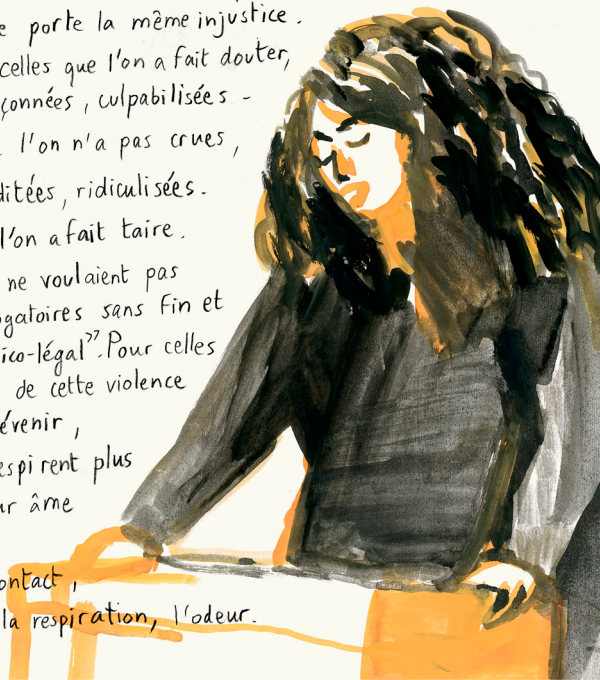 porte la même injustice.
celles que l'on a fait douter,
culpabilisées -
l'on n'a pas crues,
ridiculisées.
l'on a fait taire.
ne voulaient pas
sans fin et
ico-légal". Pour celles
de cette violence
évenir,
espirent plus
âme
ontact,
la respiration, l'odeur.